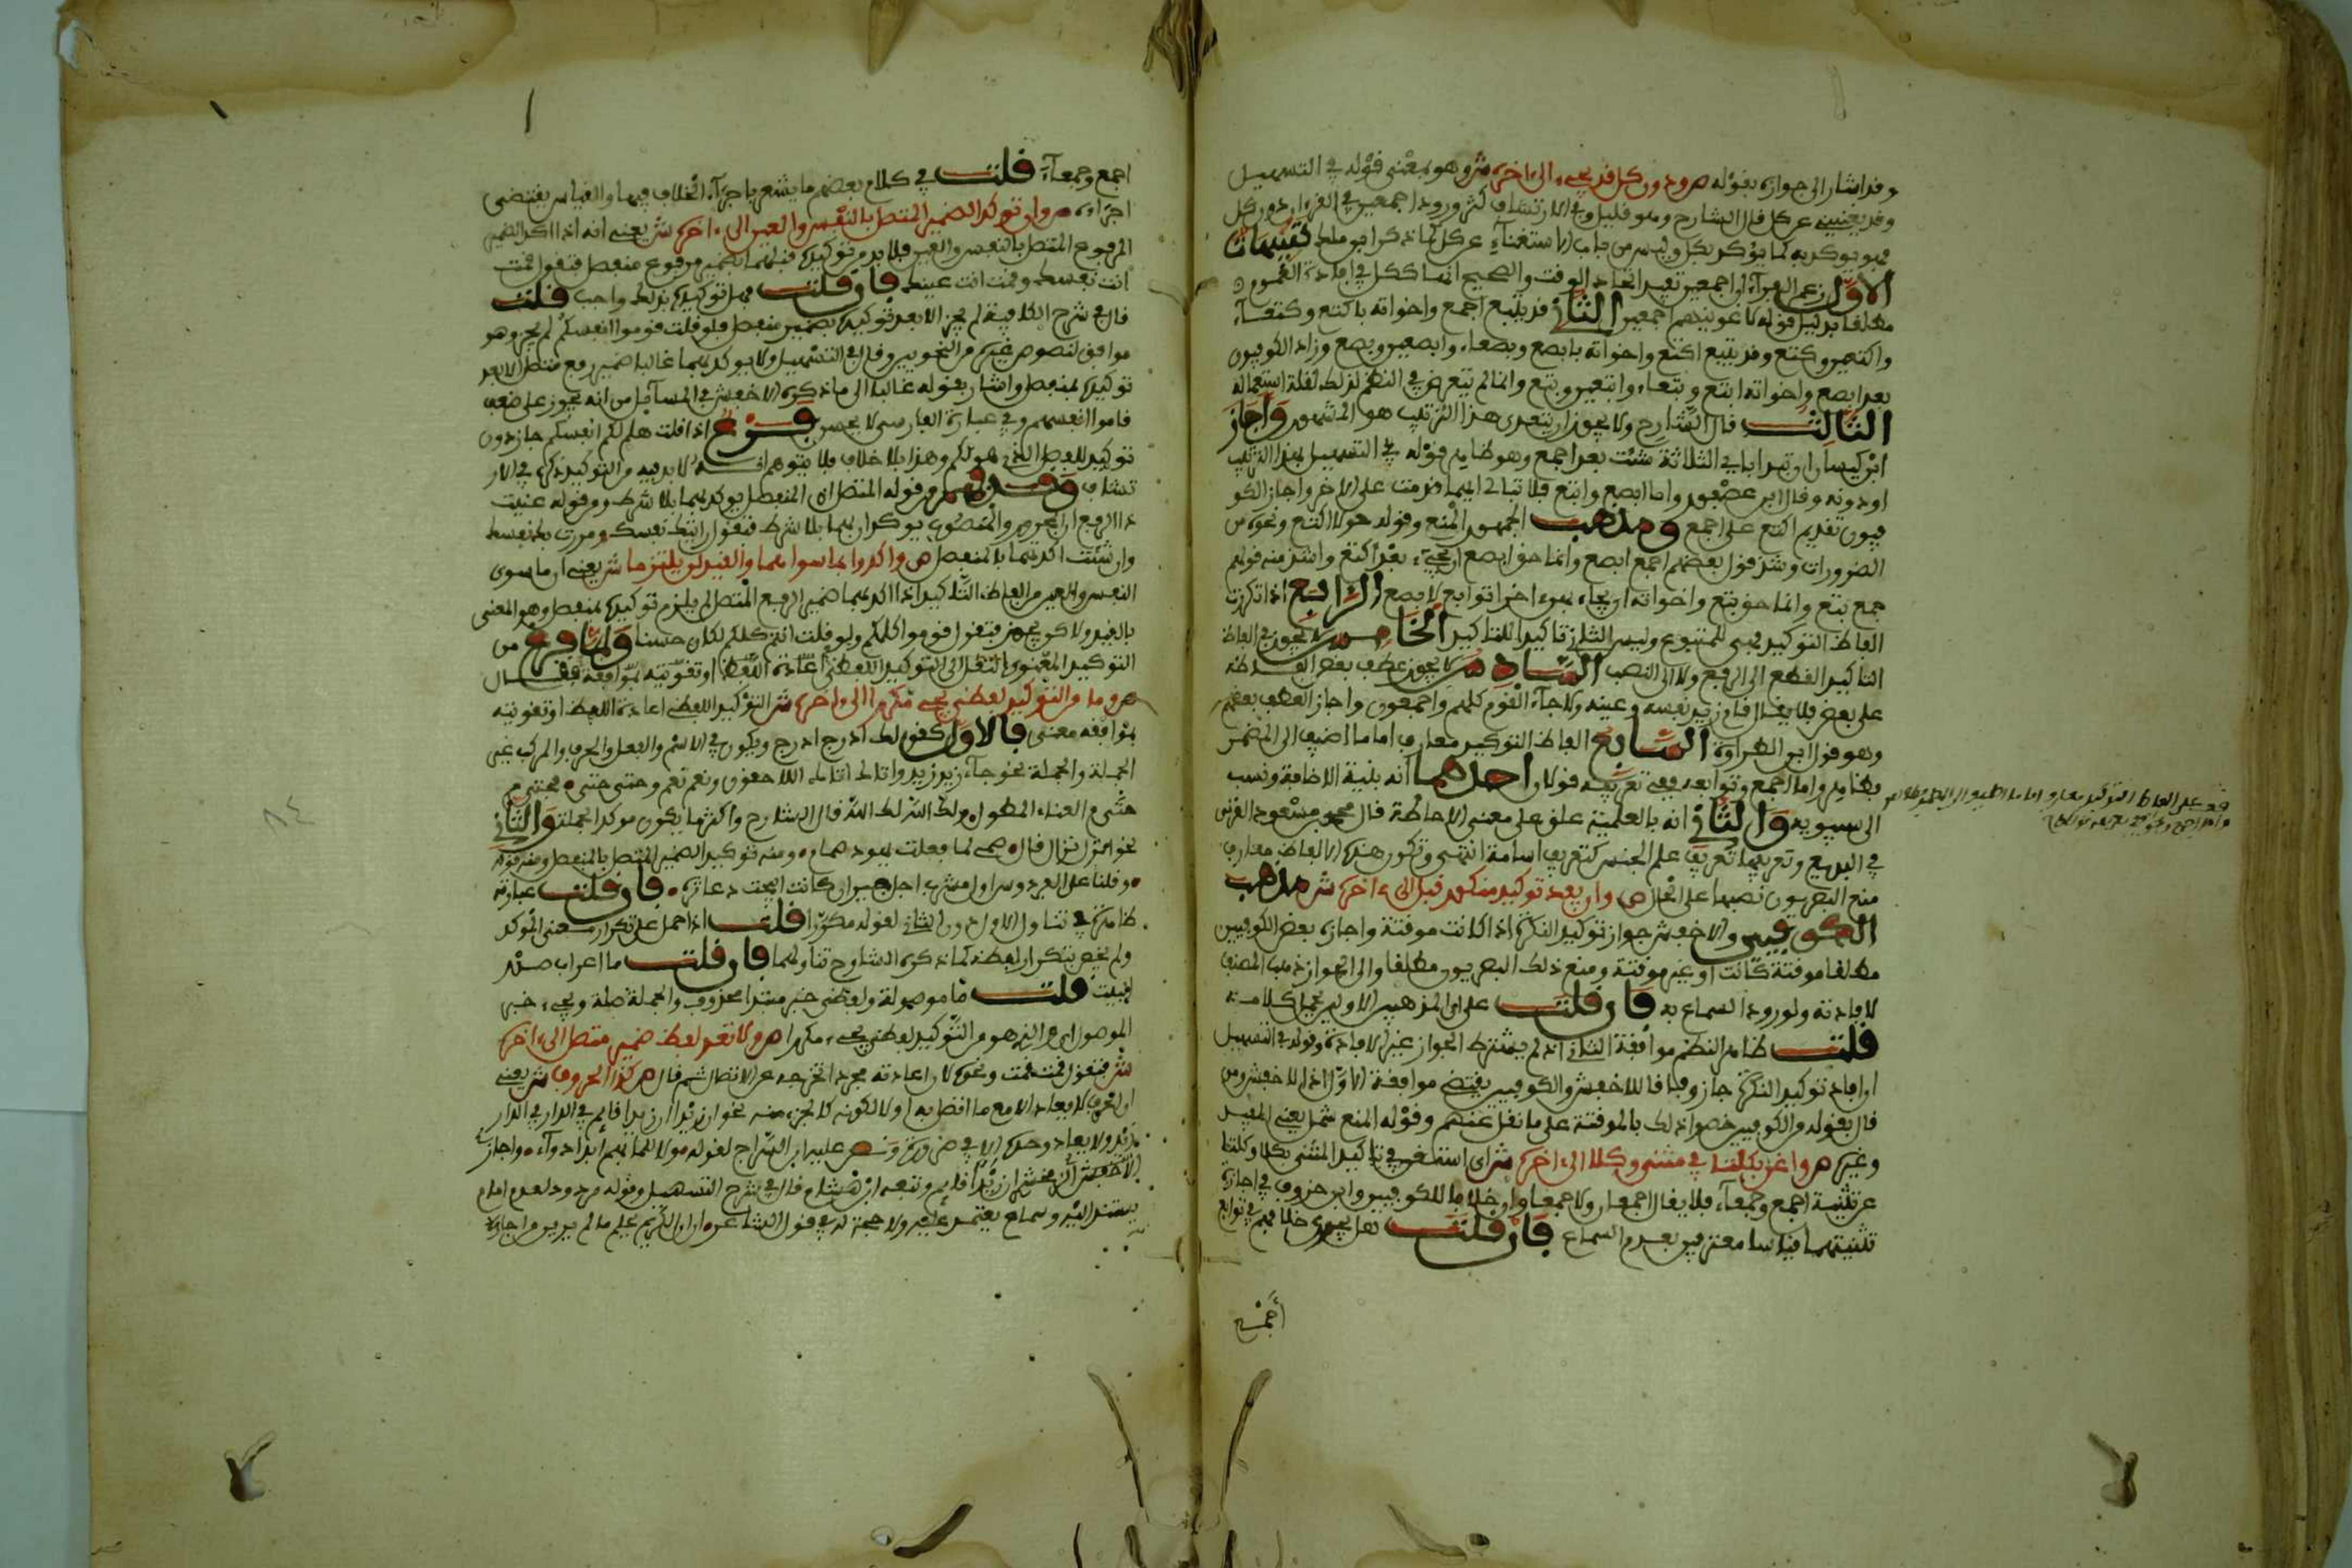 وقد اشار الى جوازه بقوله ص ودون كل قد يجيء الى اخره ش وهو بمعنى قوله في التسهيل
وقد يغنين عن كل قال الشارح وهو قليل وفي الارتشاف كثر ورود اجمعين في القرءان دون كل
فهو يوكد به كما يوكد بكل وليس من باب الاستغناء عن كل كما ذكر ابن مالك تنبيهات
الاول زعم الفراء ان اجمعين تفيد اتحاد الوقت والصحيح انها ككل في افادة العموم
مطلقا بدليل قوله لاغوينهم اجمعين الثاني قد يتبع اجمع واخواته باكتع وكتعاء
واكتعين وكتع وقد يتبع اكتع واخواته بابصع وبصعاء وابصعين وبصع وزاد الكوفيون
بعد ابصع واخواته ابتع وبتعاء وابتعين وبتع وانما لم يتعرض في النظم لذلك لقلة استعماله
الثالث قال الشارح ولا يجوز ان يتعدى هذا الترتيب هو المشهور واجاز
ابن كيسان ان تبدا باي الثلاثة شئت بعد اجمع وهو ظاهر قوله في التسهيل بهذا الترتيب
او دونه وقال ابن عصفور واما ابصع وابتع فلا تبالي ايهما قدمت على الاخر واجاز الكو
فيون تقديم اكتع على اجمع ومذهب الجمهور المنع وقوله حولا اكتع ونحوه من
الضرورات وشذ قول بعضهم اجمع ابصع وانما حق ابصع ان يجيء بعد اكتع واشذ منه قولهم
جمع بتع وانما حق بتع واخواته ان يجاء بهن اخرا توابع لابصع الرابع اذا تكررت
الفاظ التوكيد فهي للمتبوع وليس الثاني تاكيدا للتاكيد الخامس لا يجوز في الفاظ
التاكيد القطع الى الرفع ولا الى النصب السادس لا يجوز عطف بعض الفاظه
على بعض فلا يقال قام زيد نفسه وعينه ولا جاء القوم كلهم واجمعون واجاز العطف بعضهم
وهو قول ابن الطراوة السابع الفاظ التوكيد معارف اما ما اضيف الى المضمر
فظاهر واما اجمع وتوابعه ففي تعريفه قولان احدهما انه بنية الاضافة ونسب
الى سيبويه والثاني انه بالعلمية علق على معنى الاحاطة قال محمد بن مسعود الغزني
في البديع وتعريفها تعريف علم الجنس كتعريف اسامة انتهى ولكون هذه الالفاظ معارف
منع البصريون نصبها على الحال ص وان يفد توكيد منكور قبل الى ءاخره ش مذهب
الكوفيين والاخفش جواز توكيد النكرة اذا كانت موقتة واجازه بعض الكوفيين
مطلقا موقتة كانت او غير موقتة ومنع ذلك البصريون مطلقا والى الجواز ذهب المصنف
لافادته ولورود السماع به فان قلت على اي المذهبين الاولين يحمل كلامه
قلت ظاهر النظم موافقة الثاني اذ لم يشترط الجواز غير الافادة وقوله في التسهيل
ان افاد توكيد النكرة جاز وفاقا للاخفش والكوفيين يقتضي موافقة الاول اذ الاخفش ومن
قال بقوله من الكوفيين خصوا ذلك بالموقتة على ما نقل عنهم وقوله المنع شمل يعني المفيد
وغيره ص واغن بكلتا في مثنى وكلا الى ءاخره ش اي استغن في تاكيد المثنى بكلا وكلتا
عن تثنية اجمع وجمعاء فلا يقال اجمعان ولا جمعاوان خلافا للكوفيين وابن خروف في اجازة
تثنيتهما قياسا معترفين بعدم السماع فان قلت هل يجري خلافهم في توابع
أجمع
اجمع وجمعاء قلت في كلام بعضهم ما يشعر باجراء الخلاف فيها والقياس يقتضي
اجراءه ص وان توكد الضمير المتصل بالنفس والعين الى ءاخره ش يعني انه اذا اكد الضمير
المرفوع المتصل بالنفس والعين فلا بد من توكيده قبلهما بضمير مرفوع منفصل فتقول قمت
انت نفسك وقمت انت عينك فان قلت فهل توكيده بذلك واجب قلت
قال في شرح الكافية لم يجز الا بعد توكيده بضمير منفصل فلو قلت قوموا انفسكم لم يجز وهو
موافق لنصوص غيره من النحويين وقال في التسهيل ولا يوكد بهما غالبا ضمير رفع متصل الا بعد
توكيده بمنفصل واشار بقوله غالبا الى ما ذكره الاخفش في المسائل من انه يجوز على ضعف
قاموا انفسهم وفي عبارة الفارسي لا يحسن فرع اذا قلت هلم لكم انفسكم جاز دون
توكيد للفصل الذي هو لكم وهذا بلا خلاف فلا يتوهم انه لا بد فيه من التوكيد ذكره في الار
تشاف وفهم من قوله المتصل ان المنفصل يوكد بهما بلا شرط ومن قوله عنيت
ذا الرفع ان المجرور والمنصوب يوكدان بهما بلا شرط فتقول رايتك نفسك ومررت بك نفسك
وان شئت اكدتهما بالمنفصل ص واكدوا بما سواهما والقيد لن يلتزما ش يعني ان ما سوى
النفس والعين من الفاظ التاكيد اذا اكد بهما ضمير الرفع المتصل لم يلزم توكيده بمنفصل وهو المعنى
بالقيد ولا كن يجوز فتقول قوموا كلكم ولو قلت انتم كلكم لكان حسنا ولما فرغ من
التوكيد المعنوي انتقل الى التوكيد اللفظي اعادة اللفظ او تقويته بموافقه فقال
ص وما من التوكيد لفظي يجي مكررا الى ءاخره ش التوكيد اللفظي اعادة اللفظ او تقويته
بموافقه معنى فالاول كقولك ادرج ادرج ويكون في الاسم والفعل والحرف والمركب غير
الجملة والجملة نحو جاء زيد زيد واتاك اتاك اللاحقون ونعم نعم وحتى حتى
حتى م العناء المطول ولك الله لك الله قال الشارح واكثر ما يكون موكد الجملة والثاني
نحو انزل نزال قال صمي لما فعلت يهود صمام ومنه توكيد الضمير المتصل بالمنفصل ومنه قوله
وقلنا على الفردوس اول مشرب اجل جير ان كانت ابيحت دعاثره فان قلت عبارته
ظاهرة في تناول الاول دون الثاني لقوله مكررا قلت اذا حمل على تكرار معنى الموكد
ولم يخص بتكرار لفظه كما ذكره الشارح تناولهما فان قلت ما اعراب صدر
البيت قلت ما موصولة ولفظي خبر مبتدا محذوف والجملة صلة ويجيء خبر
الموصول اي والذي هو من التوكيد لفظي يجيء مكررا ص ولا تعد لفظ ضمير متصل الى ءاخره
ش فتقول قمت قمت ونحوه لان اعادته مجردا تخرجه عن الاتصال ثم قال ص كذا الحروف ش يعني
ان الحرف لا يعاد الا مع ما اتصل به اولا لكونه كالجزء منه نحو ان زيدا ان زيدا قائم في الدار في الدار
زيد ولا يعاد وحده الا في ضرورة ونص عليه ابن السراج لقوله ولا للما بهم ابدا دواء واجاز
يستند اليه وسماع يعتمد عليه ولا حجة له في قول الشاعر ان ان الكريم يحلم ما لم يرين من اجاره